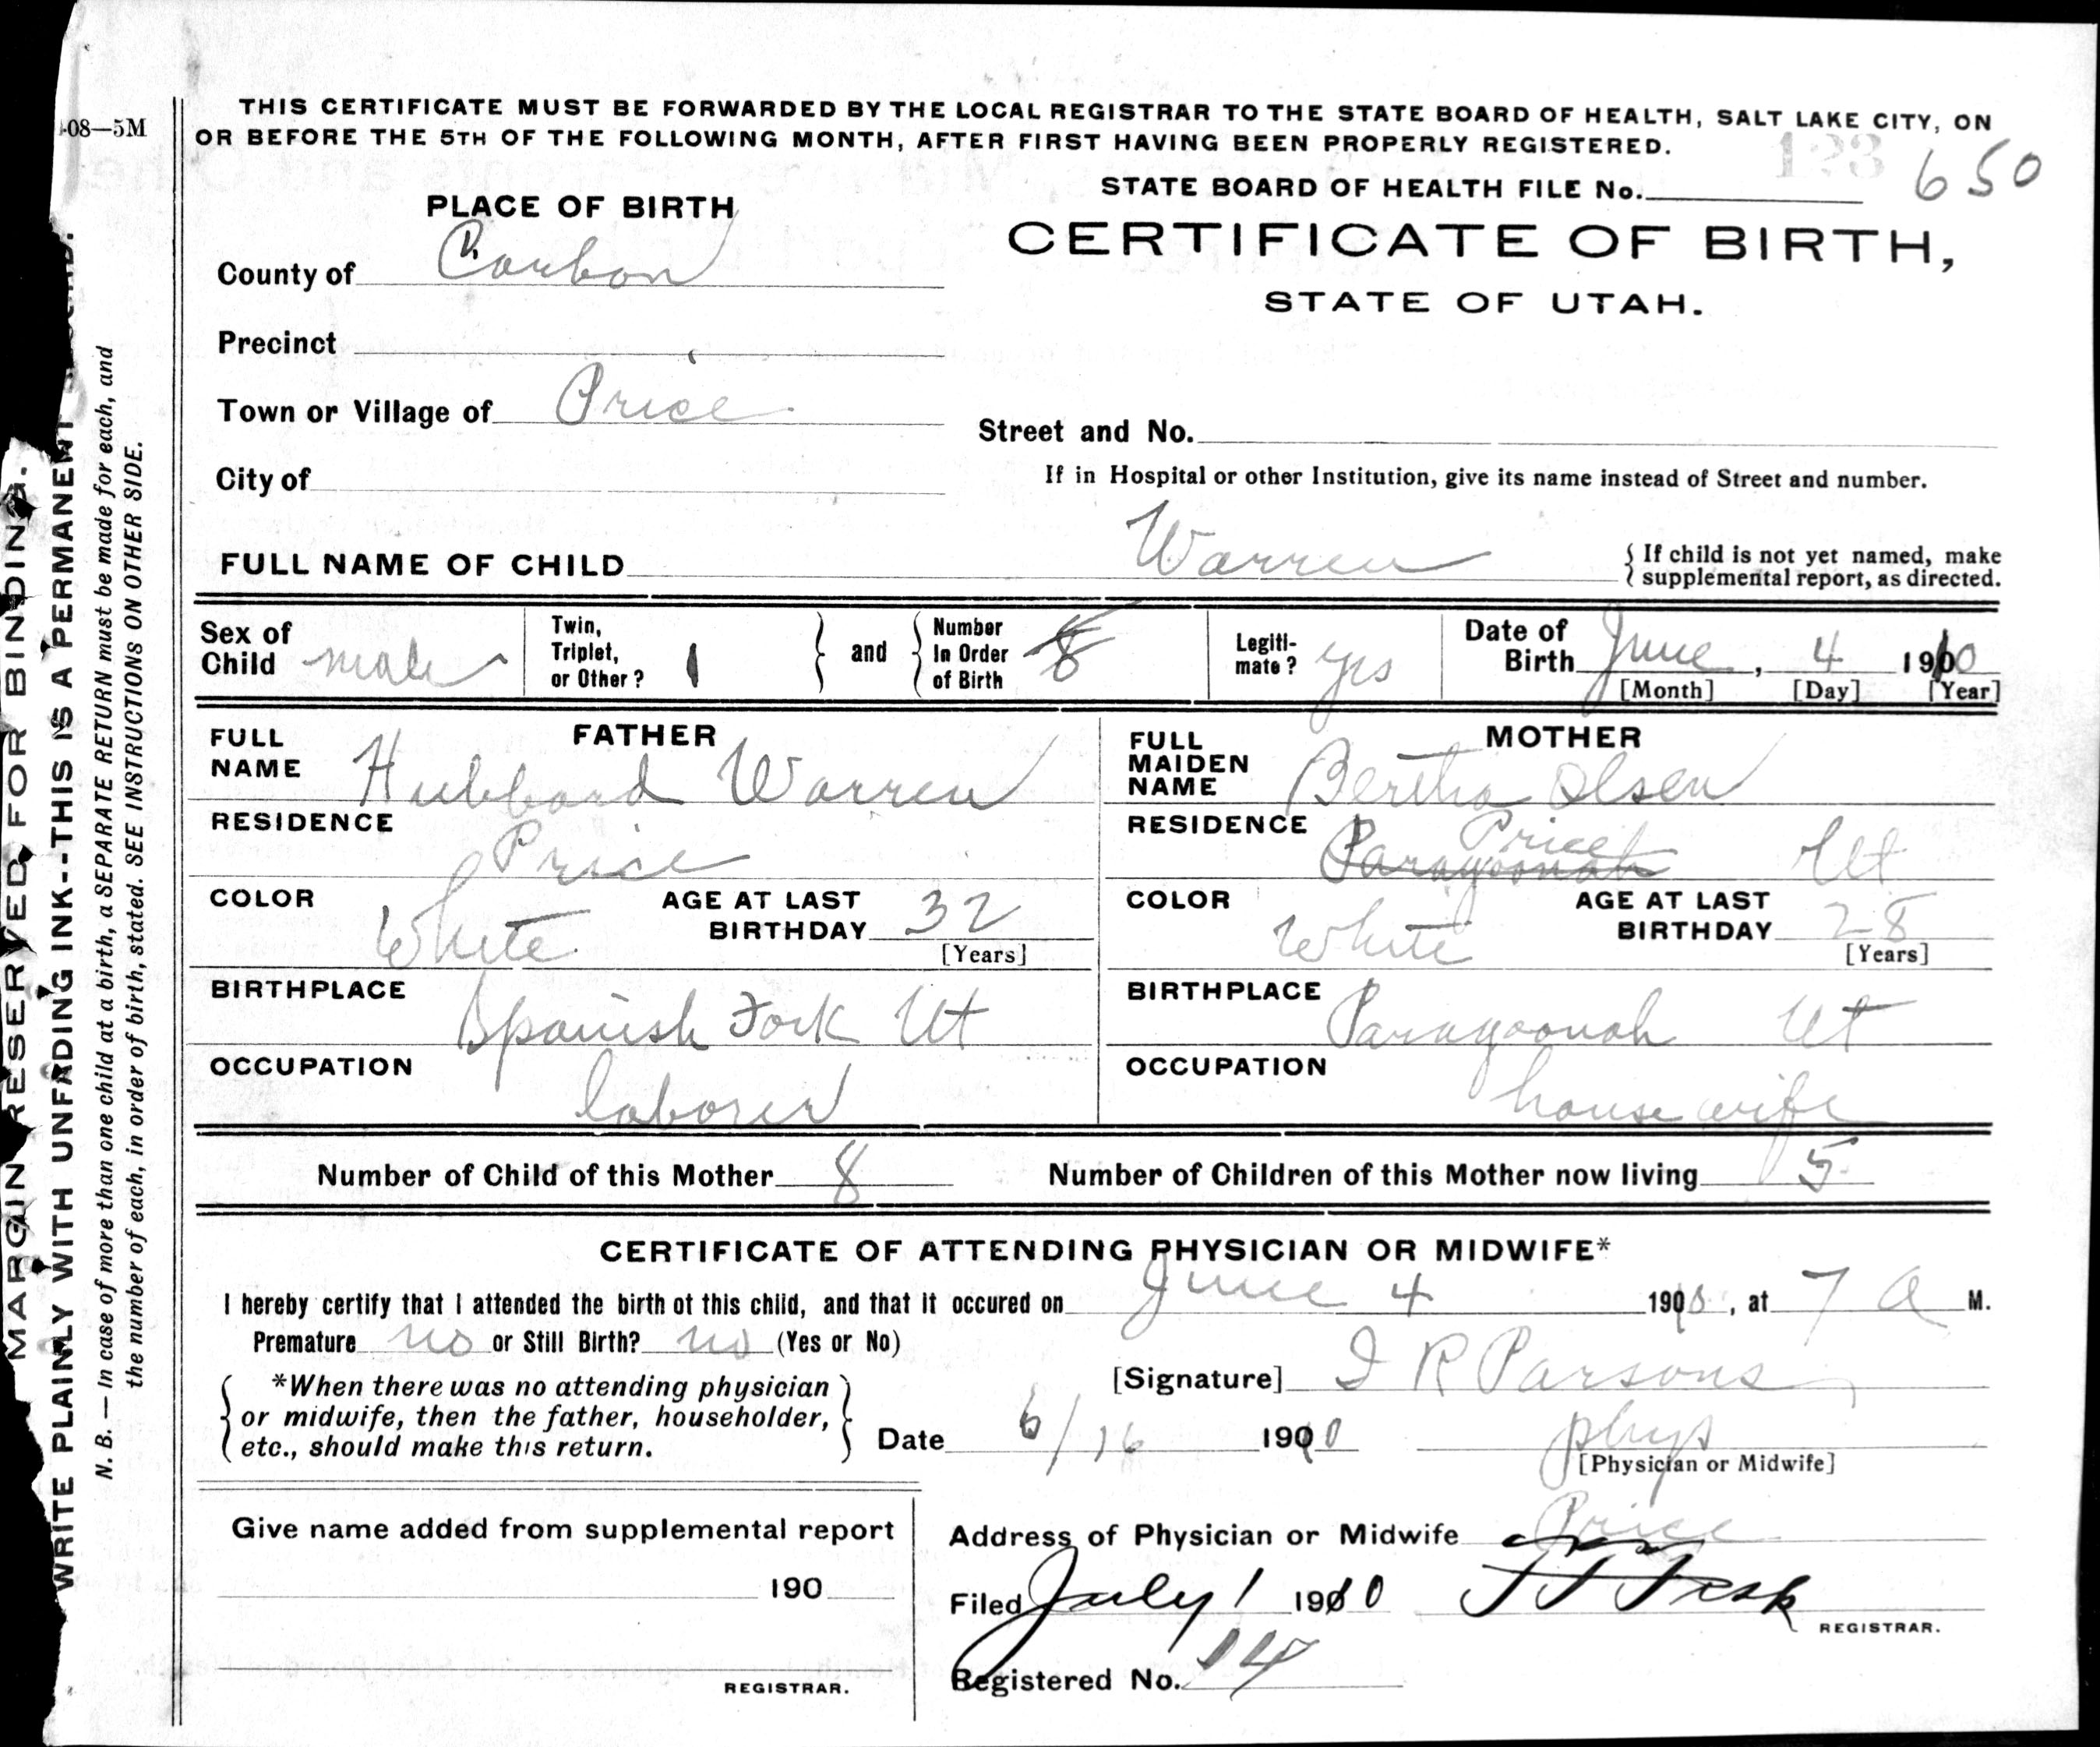 THIS CERTIFICATE MUST BE FORWARDED BY THE LOCAL REGISTRAR TO THE STATE BOARD OF HEALTH, SALT LAKE CITY, ON
OR BEFORE THE 5TH OF THE FOLLOWING MONTH, AFTER FIRST HAVING BEEN PROPERLY REGISTERED.
08—5M
STATE BOARD OF HEALTH FILE No. 650
PLACE OF BIRTH
CERTIFICATE OF BIRTH,
STATE OF UTAH.
County of Carbon
Precinct
Town or Village of Price
Street and No.
City of
If in Hospital or other Institution, give its name instead of Street and number.
FULL NAME OF CHILD Warren
If child is not yet named, make
supplemental report, as directed.
Sex of Child male
Twin, Triplet, or Other? 1
and
Number In Order of Birth 8
Legiti-mate? yes
Date of Birth June, 4 1910
[Month] [Day] [Year]
FATHER
FULL NAME Hubbard Warren
RESIDENCE Price
COLOR White
AGE AT LAST BIRTHDAY 32
[Years]
BIRTHPLACE Spanish Fork Ut
OCCUPATION laborer
MOTHER
FULL MAIDEN NAME Bertha Olsen
RESIDENCE Paragoonah Price Ut
COLOR White
AGE AT LAST BIRTHDAY 28
[Years]
BIRTHPLACE Paragoonah Ut
OCCUPATION housewife
Number of Child of this Mother 8
Number of Children of this Mother now living 5
CERTIFICATE OF ATTENDING PHYSICIAN OR MIDWIFE*
I hereby certify that I attended the birth of this child, and that it occured on June 4 1910, at 7 a M.
Premature no or Still Birth? no (Yes or No)
*When there was no attending physician
or midwife, then the father, householder,
etc., should make this return.
[Signature] I R Parsons
Date 6/16 1910
phys
[Physician or Midwife]
Give name added from supplemental report
190
REGISTRAR.
Address of Physician or Midwife Price
Filed July 1 1910
REGISTRAR.
Registered No. 14
MARGIN RESERVED FOR BINDING.
WRITE PLAINLY WITH UNFADING INK--THIS IS A PERMANENT
N. B. — In case of more than one child at a birth, a SEPARATE RETURN must be made for each, and
the number of each, in order of birth, stated. SEE INSTRUCTIONS ON OTHER SIDE.